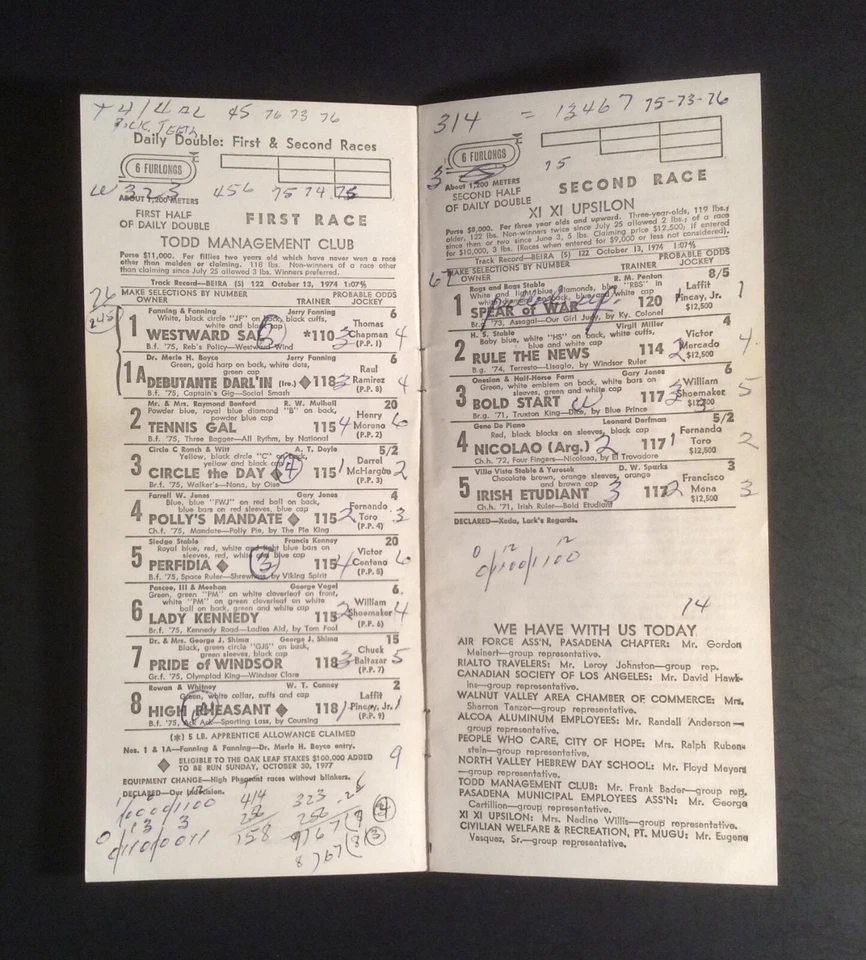 + 414 45 76 73 76
PICK TEETH
Daily Double: First & Second Races
6 FURLONGS
W 323 456 75 74 75
ABOUT 1,200 METERS
FIRST HALF
OF DAILY DOUBLE
FIRST RACE
TODD MANAGEMENT CLUB
Purse $11,000. For fillies two years old which have never won a race
other than maiden or claiming. 118 lbs. Non-winners of a race other
than claiming since July 25 allowed 3 lbs. Winners preferred.
Track Record—BEIRA (5) 122 October 13, 1974 1:07⅘
26
245
MAKE SELECTIONS BY NUMBER PROBABLE ODDS
OWNER TRAINER JOCKEY
Fanning & Fanning Jerry Fanning 6
White, black circle "JF" back, black cuffs,
white and black cap Thomas
1 WESTWARD *110 3 Chapman 4
B.f. '75, Reb's Policy—Westward Wind (P.P. 1)
Dr. Merle H. Boyce Jerry Fanning 6
Green, gold harp on back, white dots,
green cap Raul
1A DEBUTANTE DARL'IN (Ire.) ◆ 118 3 Ramirez 4
B.f. '75, Captain's Gig—Social Smash (P.P. 8)
Mr. & Mrs. Raymond Benford R. W. Mulhall 20
Powder blue, royal blue diamond "B" on back,
powder blue cap Henry
2 TENNIS GAL 115 4 Moreno 6
B.f. '75, Three Bagger—All Rythm, by National (P.P. 2)
Circle C Ranch & Witt A. T. Doyle 5/2
Yellow, black circle "C" on back,
yellow and black cap Darrel
3 CIRCLE the DAY ◆ 4 115 1 McHargue 2
B.f. '75, Walker's—Nona, by Olse (P.P. 3)
Farrell W. Jones Gary Jones 4
Blue, blue "FWJ" on red ball on back,
blue bars on red sleeves, blue cap Fernando
4 POLLY'S MANDATE ◆ 115 2 Toro 3
Ch.f. '75, Mandate—Polly Pie, by The Pie King (P.P. 4)
Sledge Stable Francis Kenney 20
Royal blue, red, white and light blue bars on
sleeves, red, white or blue cap Victor
5 PERFIDIA ◆ 3 115 4 Centeno 6
B.f. '75, Space Ruler—Shrewdness, by Viking Spirit (P.P. 5)
Pascoe, III & Meehan George Vogel 6
Green, green "PM" on white cloverleaf on front,
white "PM" on green cloverleaf on white
ball on back, green and white cap William
6 LADY KENNEDY 115 2 Shoemaker 4
Br.f. '75, Kennedy Road—Ladies Aid, by Tom Fool (P.P. 6)
Dr. & Mrs. George J. Shima George J. Shima 15
Black, green circle "GJS" on back,
green cuffs, black cap Chuck
7 PRIDE of WINDSOR 118 3 Baltazar 5
Gr.f. '75, Olympiad King—Windsor Clare (P.P. 7)
Rowan & Whitney W. T. Canney 2
Green, white collar, cuffs and cap Laffit
8 HIGH PHEASANT ◆ 118 1 Pincay, Jr. 1
B.f. '75, Ack Ack—Sporting Lass, by Coursing (P.P. 9)
(*) 5 LB. APPRENTICE ALLOWANCE CLAIMED
Nos. 1 & 1A—Fanning & Fanning—Dr. Merle H. Boyce entry.
◆ ELIGIBLE TO THE OAK LEAF STAKES $100,000 ADDED
TO BE RUN SUNDAY, OCTOBER 30, 1977 9
EQUIPMENT CHANGE—High Pheasant races without blinkers.
DECLARED—Our Indecision.
414 323
256 256
158
314 = 13467 75-73-76
6 FURLONGS
15
About 1,200 METERS
SECOND HALF
OF DAILY DOUBLE
SECOND RACE
XI XI UPSILON
Purse $8,000. For three year olds and upward. Three-year-olds, 119 lbs.;
older, 122 lbs. Non-winners twice since July 25 allowed 2 lbs.; of a race
since then or two since June 3, 5 lbs. Claiming price $12,500, if entered
for $10,000, 3 lbs. (Races when entered for $9,000 or less not considered).
Track Record—BEIRA (5) 122 October 13, 1974 1:07⅘
67
MAKE SELECTIONS BY NUMBER PROBABLE ODDS
OWNER TRAINER JOCKEY
Rags and Bags Stable R. M. Penton 8/5
White and light blue diamonds, blue "RBS" in
white diamond on back, blue and white cap Laffit
1 SPEAR of WAR 120 Pincay, Jr. 1
Br.g. '73, Assagai—Our Girl Judy, by Ky. Colonel $12,500
H. S. Stable Virgil Miller 4
Baby blue, white "HS" on back, white cuffs,
blue and white cap Victor
2 RULE THE NEWS 114 2 Mercado 4
B.g. '74, Terresto—Lisagia, by Windsor Ruler $12,500
Onesian & Half-Horse Farm Gary Jones 6
Green, white emblem on back, white bars on
sleeves, green and white cap William
3 BOLD START 117 Shoemaker 5
Br.g. '71, Truxton King—Dice, by Blue Prince $12,500
Gene De Piano Leonard Dorfman 5/2
Red, black blocks on sleeves, black cap Fernando
4 NICOLAO (Arg.) 2 117 1 Toro 2
Ch.h. '72, Four Fingers—Nicolosa, by El Trovadore $12,500
Villa Vista Stable & Yuresek D. W. Sparks 3
Chocolate brown, orange sleeves, orange
and brown cap Francisco
5 IRISH ETUDIANT 3 117 2 Mena 3
Ch.h. '71, Irish Ruler—Bold Etudiant $12,500
DECLARED—Xoda, Lark's Regards.
0 12 12
0/1100/1100
14
WE HAVE WITH US TODAY
AIR FORCE ASS'N, PASADENA CHAPTER: Mr. Gordon
Meinert—group representative.
RIALTO TRAVELERS: Mr. Leroy Johnston—group rep.
CANADIAN SOCIETY OF LOS ANGELES: Mr. David Hawk-
ins—group representative.
WALNUT VALLEY AREA CHAMBER OF COMMERCE: Mrs.
Sharron Tanzer—group representative.
ALCOA ALUMINUM EMPLOYEES: Mr. Randall Anderson—
group representative.
PEOPLE WHO CARE, CITY OF HOPE: Mrs. Ralph Ruben-
stein—group representative.
NORTH VALLEY HEBREW DAY SCHOOL: Mr. Floyd Meyers
—group representative.
TODD MANAGEMENT CLUB: Mr. Frank Bader—group rep.
PASADENA MUNICIPAL EMPLOYEES ASS'N: Mr. George
Cartillion—group representative.
XI XI UPSILON: Mrs. Nadine Willis—group representative.
CIVILIAN WELFARE & RECREATION, PT. MUGU: Mr. Eugene
Vasquez, Sr.—group representative.